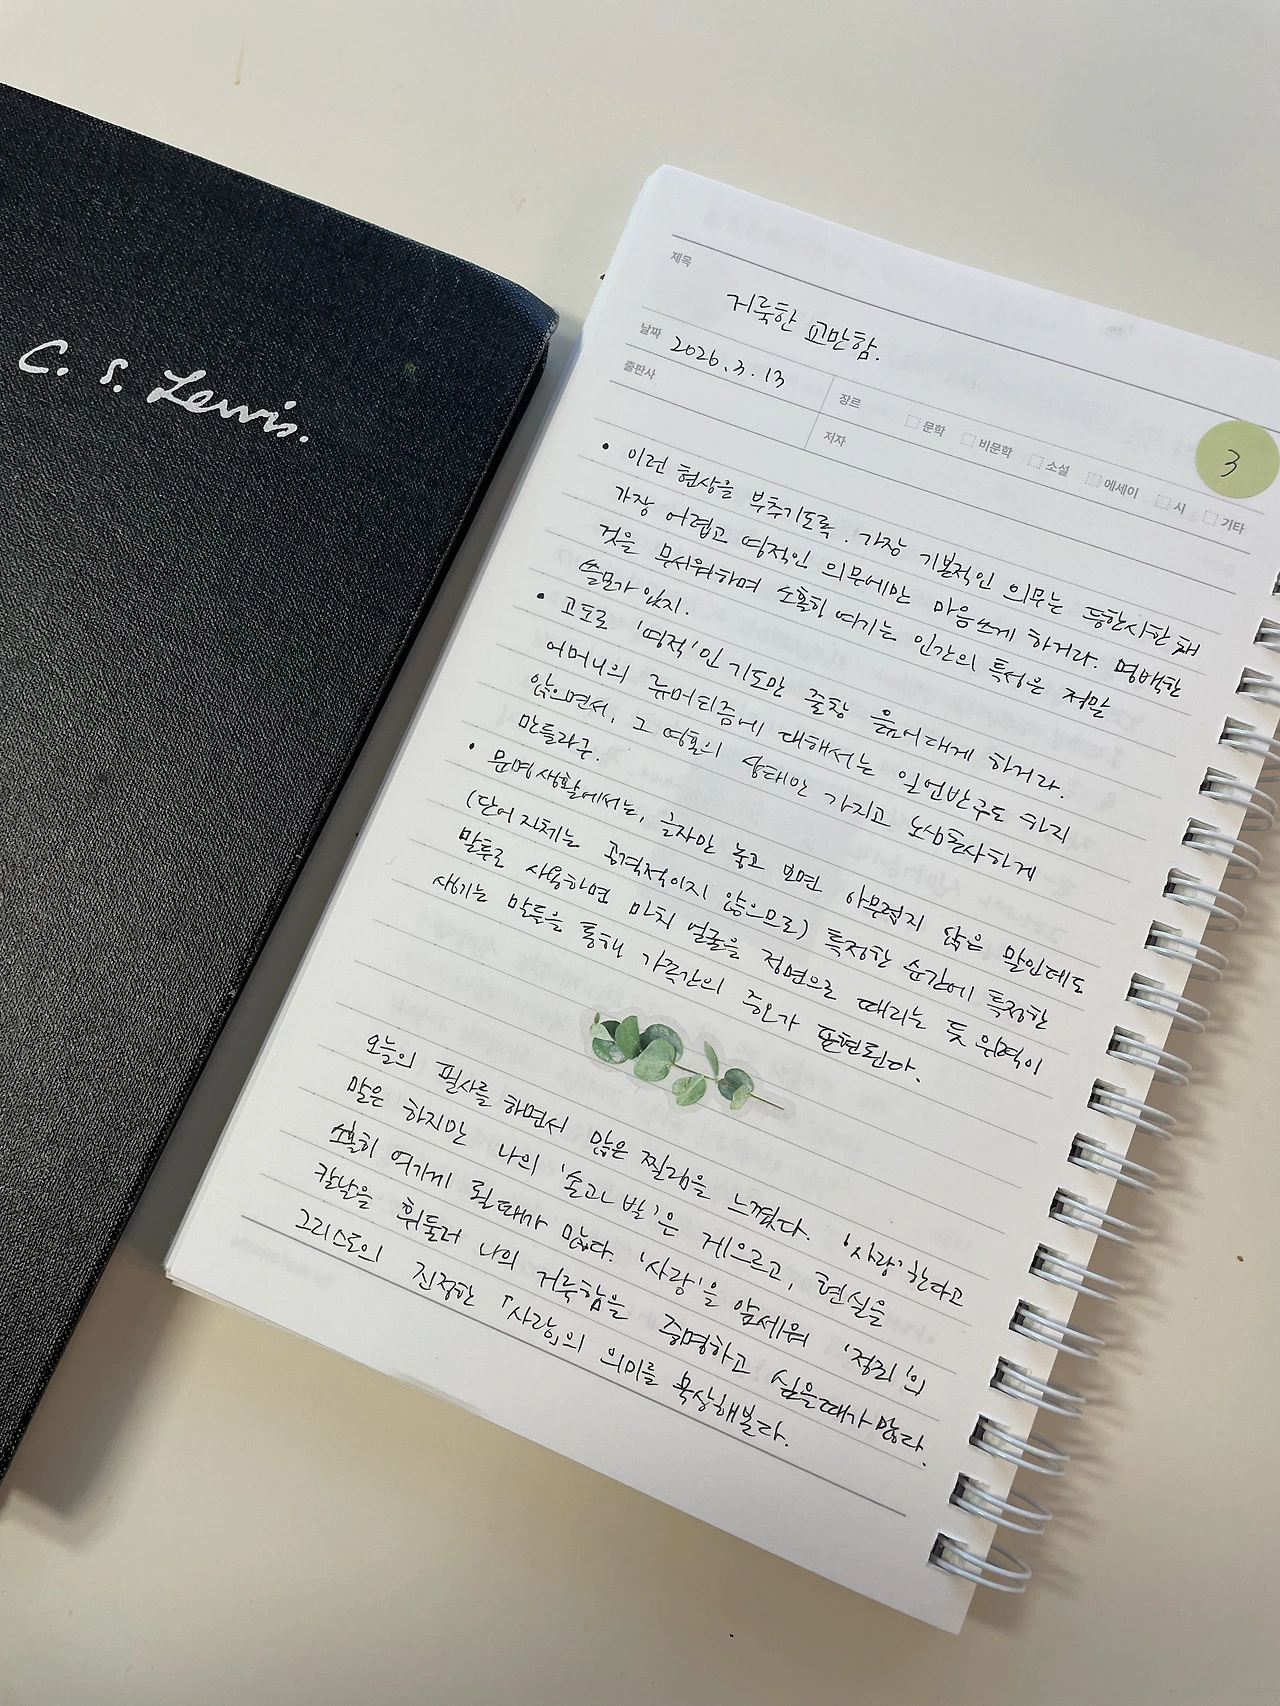 C. S. Lewis.
제목
거룩한 교만함.
날짜 2026.3.13
장르 문학 비문학 소설 에세이 시 기타
출판사
저자
3
• 이런 현상을 부추기도록. 가장 기본적인 의무는 등한시한 채
가장 어렵고 영적인 의무에만 마음쓰게 하거라. 명백한
것을 무서워하며 소홀히 여기는 인간의 특성은 정말
쓸모가 있지.
• 고도로 '영적'인 기도만 줄창 읊어대게 하거라.
어머니의 류머티즘에 대해서는 일언반구도 하지
않으면서, 그 영혼의 상태만 가지고 노심초사하게
만들라구.
• 문명생활에서는, 글자만 놓고 보면 아무렇지 않은 말인데도
(단어 자체는 공격적이지 않으므로) 특정한 순간에 특정한
말투로 사용하면 마치 얼굴을 정면으로 때리는 듯 위력이
생기는 말들을 통해 가족간의 증오가 표현된다.
오늘의 필사를 하면서 많은 찔림을 느꼈다. '사랑'한다고
말은 하지만 나의 '손과 발'은 게으르고, 현실을
소홀히 여기게 될때가 많다. '사랑'을 앞세워 '정죄'의
칼날을 휘둘러 나의 거룩함을 증명하고 싶을때가 많다.
그리스도의 진정한 「사랑」의 의미를 묵상해본다.